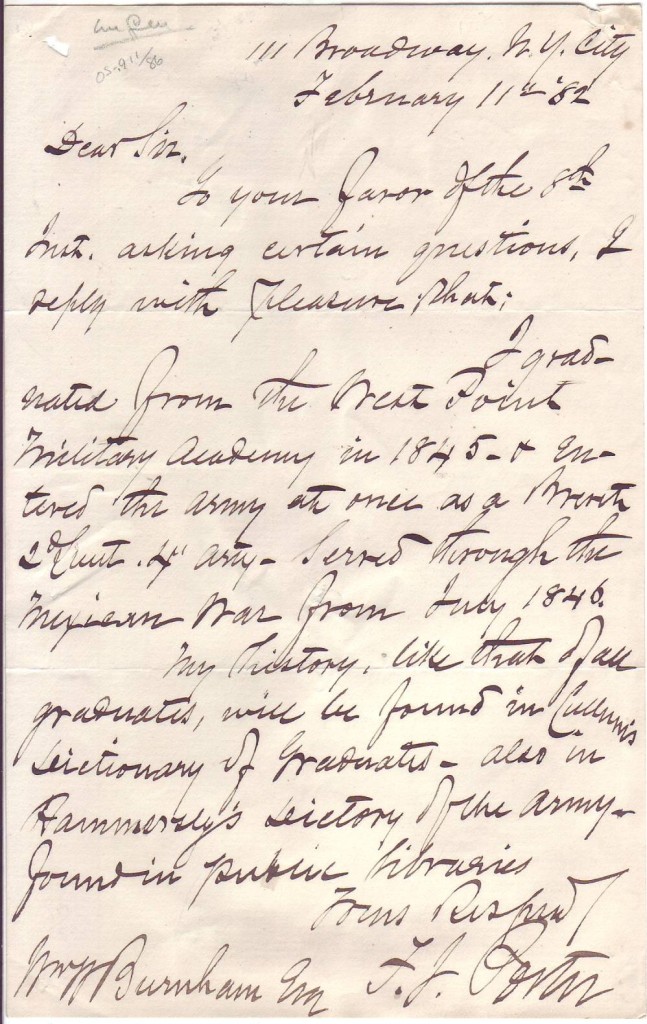 111 Broadway. N. Y. City
February 11th '82
Dear Sir.
To your favor of the 8th
Inst. asking certain questions, I
reply with pleasure that;
I grad-
uated from the West Point
Military Academy in 1845 - & en-
tered the army at once as a Brevet
2d Lieut. 4" arty - Served through the
Mexican War from July 1846.
My history, like that of all
graduates, will be found in Cullum's
Dictionary of Graduates - also in
Hammersly's Dictory of the Army -
found in public libraries
Yours Respect
F. J. Porter
Wm H Burnham Esq